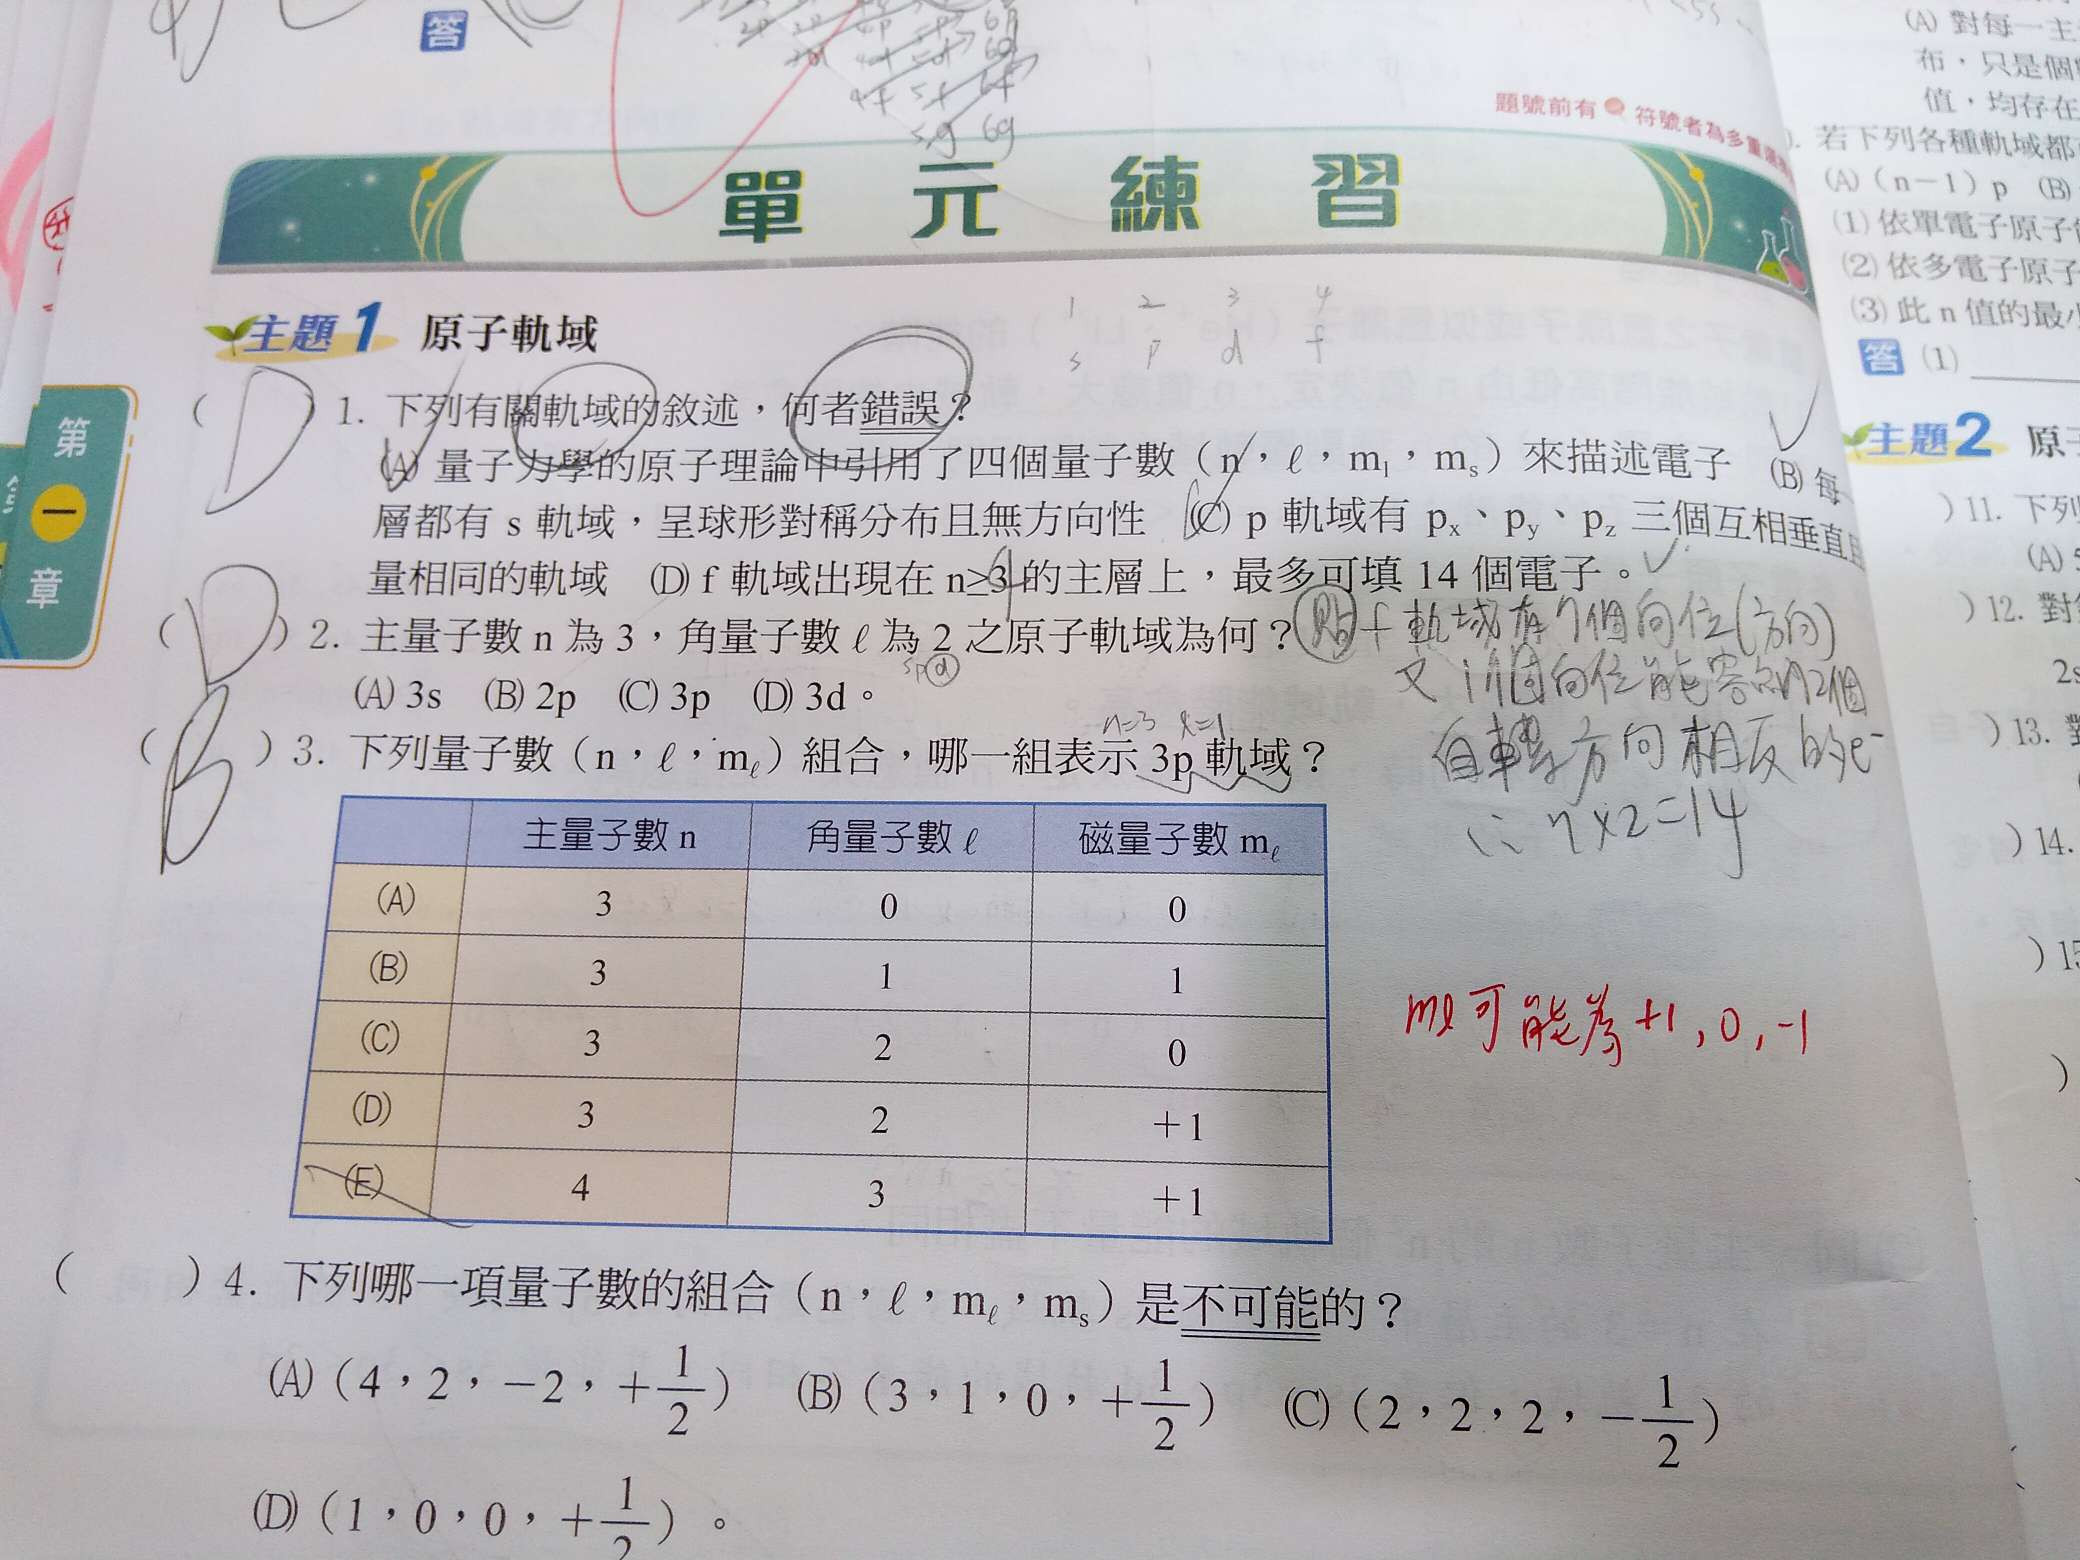 答
6d
4f 5f 6f
5g 6g
題號前有 符號者為多重選
單元練習
主題1 原子軌域
1 2 3 4
s p d f
( D ) 1. 下列有關軌域的敘述，何者錯誤？
(A) 量子力學的原子理論中引用了四個量子數（n，ℓ，ml，ms）來描述電子 (B) 每
層都有 s 軌域，呈球形對稱分布且無方向性 (C) p 軌域有 px、py、pz 三個互相垂直且
量相同的軌域 (D) f 軌域出現在 n≥3 的主層上，最多可填 14 個電子。
4
( D ) 2. 主量子數 n 為 3，角量子數 ℓ 為 2 之原子軌域為何？
spd
(A) 3s (B) 2p (C) 3p (D) 3d。
f 軌域有7個向位(方向)
又1個向位能容納2個
自轉方向相反的e-
∴ 7×2=14
n=3 ℓ=1
( B ) 3. 下列量子數（n，ℓ，mℓ）組合，哪一組表示 3p 軌域？
主量子數 n 角量子數 ℓ 磁量子數 mℓ
(A) 3 0 0
(B) 3 1 1
(C) 3 2 0
(D) 3 2 +1
(E) 4 3 +1
mℓ可能為+1,0,-1
( ) 4. 下列哪一項量子數的組合（n，ℓ，mℓ，ms）是不可能的？
(A)（4，2，−2，+1/2） (B)（3，1，0，+1/2） (C)（2，2，2，−1/2）
(D)（1，0，0，+1/2）。
第一章
(A) 對每一主
布，只是個
值，均存在
若下列各種軌域都
(A)（n−1）p (B)
(1) 依單電子原子
(2) 依多電子原子
(3) 此 n 值的最小
答 (1)
主題2 原子
) 11. 下列
(A) 5
) 12. 對
2s
) 13. 對
) 14.
) 15